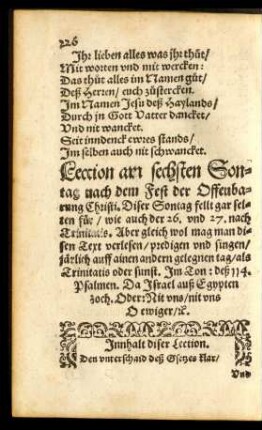 226
Ihr lieben alles was jhr thüt/
Mit worten vnd mit wercken:
Das thüt alles im Namen güt/
Deß Herzen/ euch züstercken.
Im Namen Jesu deß Haylands/
Durch jn Gott Vatter dancket/
Vnd nit wancket.
Seit inndenck ewres stands/
Im selben auch nit schwancket.
Lection am sechsten Son-
tag nach dem Fest der Offenba-
rung Christi. Diser Sontag fellt gar sel-
ten für/ wie auch der 26. vnd 27. nach
Trinitatis. Aber gleich wol mag man di-
sen Text verlesen/ predigen vnd singen/
järlich auff ainen andern gelegnen tag/ als
Trinitatis oder sunst. Im Ton: deß 114.
Psalmen. Da Israel auß Egypten
zoch. Oder: Mit vns/ nit vns
O ewiger/ ꝛc.
Innhalt diser Lection.
Den vnterschaid deß Gsetzes klar/
Vnd